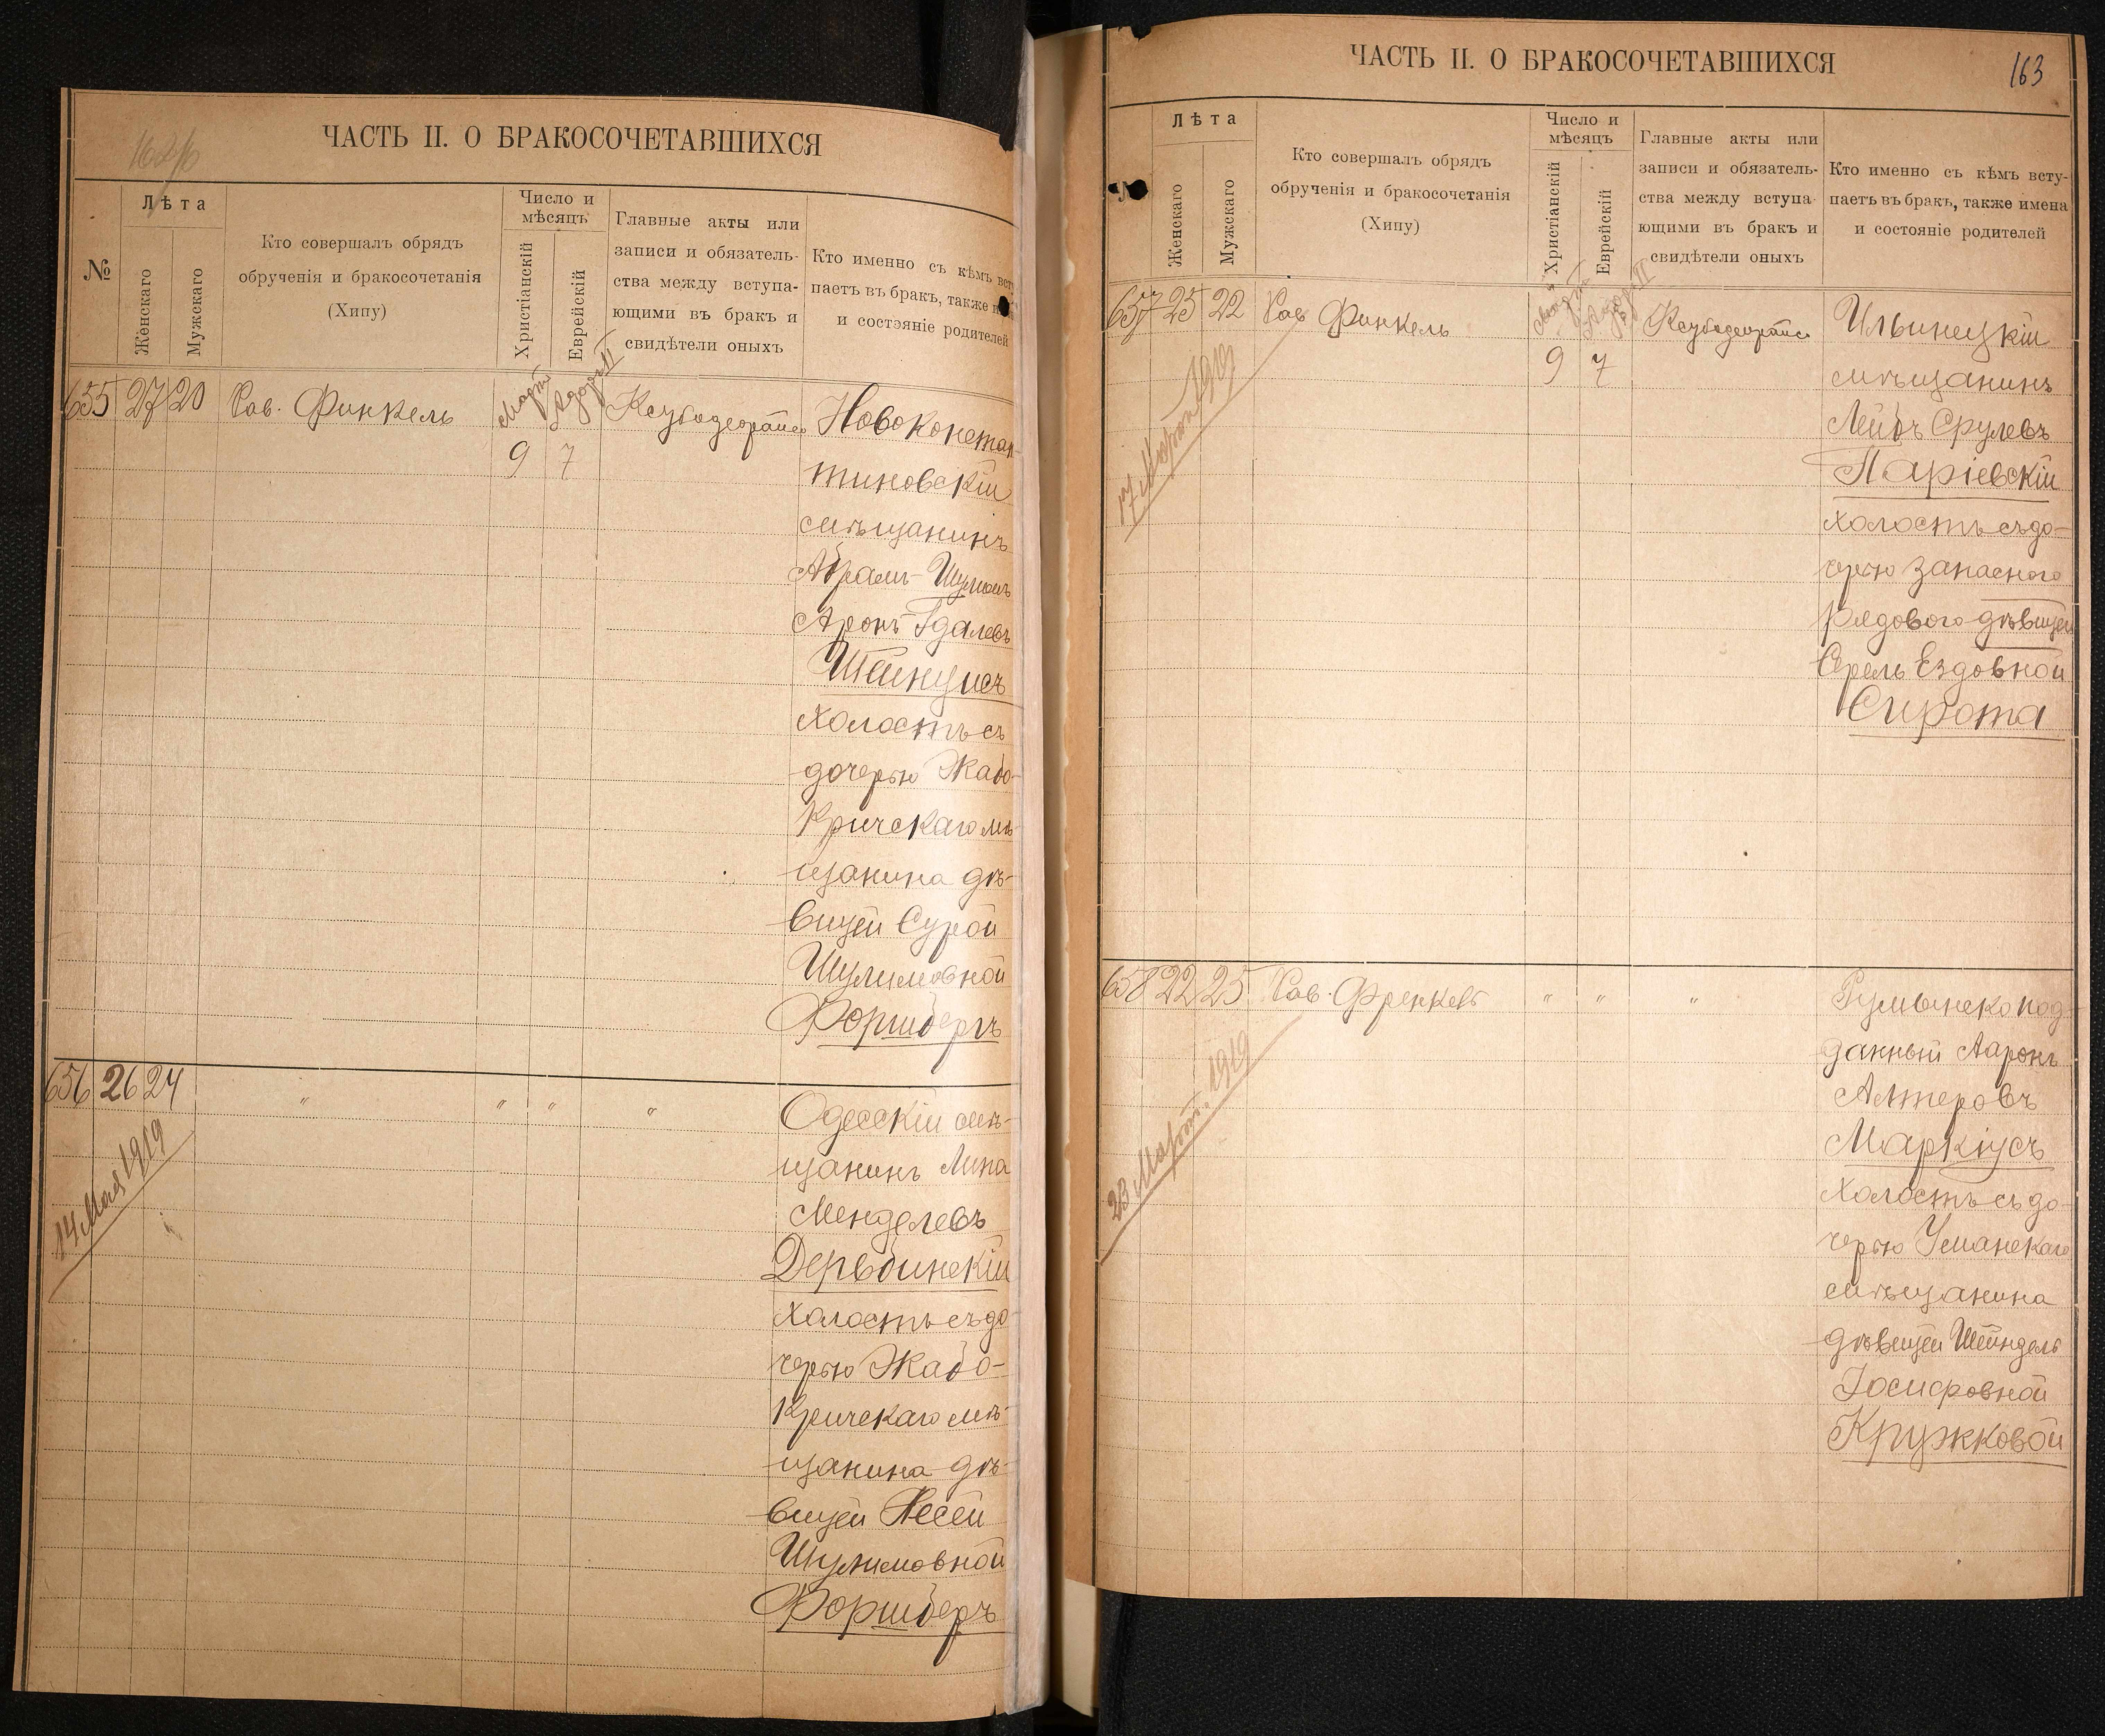 ЧАСТЬ II. О БРАКОСОЧЕТАВШИХСЯ
№
Лѣта
Женскаго
Мужскаго
Кто совершалъ обрядъ
обрученія и бракосочетанія
(Хипу)
Число и
мѣсяцъ
Христіанскій
Еврейскій
Главные акты или
записи и обязатель-
ства между вступа-
ющими въ бракъ и
свидѣтели оныхъ
Кто именно съ кѣмъ вст
паетъ въ бракъ, также и
и состояніе родителей
655 27 20 Рав. Финкель Март 9 Адоръ II 7
Новоконстан-
тиновскій
мѣщанинъ
Абрамъ-Шулимъ
Аронъ Гдалевъ
Штейнулсъ
холостъ съ
дочерью Жабо-
кричскаго мѣ-
щанина дѣ-
вицей Сурой
Шулимовной
Форшберъ
656 26 24 " " " "
14 Мая 1919
Одесскій мѣ-
щанинъ Липа
Менделевъ
Дербинскій
холостъ съ до-
черью Жабо-
кричскаго мѣ-
щанина дѣ-
вицей Песей
Шулимовной
Форшберъ
ЧАСТЬ II. О БРАКОСОЧЕТАВШИХСЯ
163
Лѣта
Женскаго
Мужскаго
Кто совершалъ обрядъ
обрученія и бракосочетанія
(Хипу)
Число и
мѣсяцъ
Христіанскій
Еврейскій
Главные акты или
записи и обязатель-
ства между вступа-
ющими въ бракъ и
свидѣтели оныхъ
Кто именно съ кѣмъ всту-
паетъ въ бракъ, также имена
и состояніе родителей
657 25 22 Рав. Финкель Март 9 Адоръ II 7
17 Марта 1919
Ильинецкій
мѣщанинъ
Лейбъ Срулевъ
Паріевскій
холостъ съ до-
черью запасного
рядового дѣвицей
Серель Ездовной
Сирота
658 22 25 Рав. Френкель " " "
23 Март. 1919
Румынско под-
данный Ааронъ
Алтеровъ
Маркіусъ
холостъ съ до-
черью Уманскаго
мѣщанина
дѣвицей Шейндель
Іосифовной
Кружковой